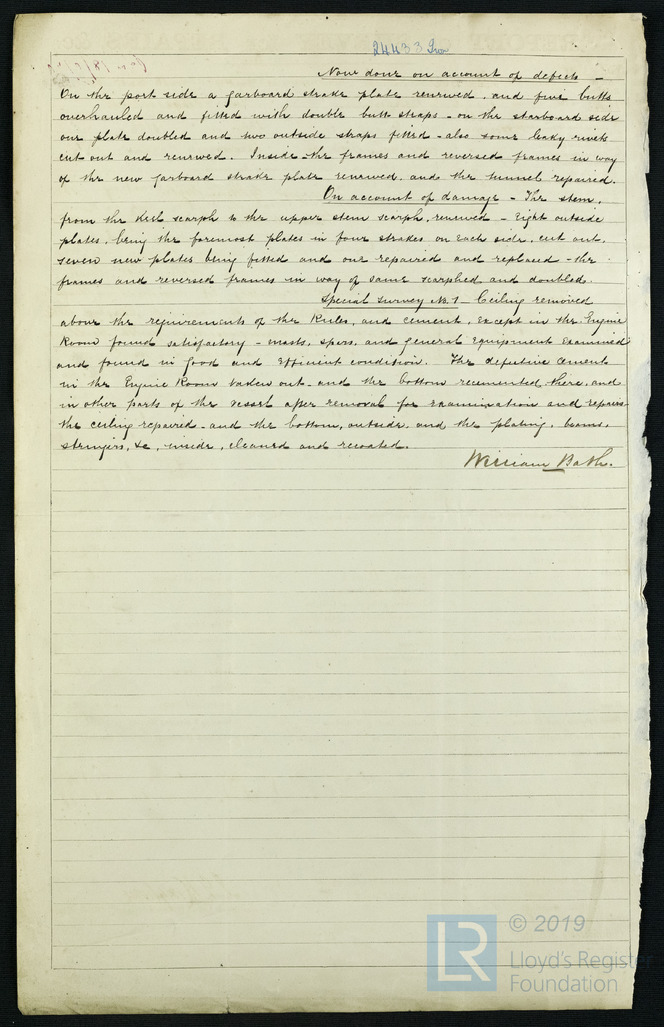 24433 Iron
Now done on account of defects -
On the port side a garboard strake plate renewed, and five butts
overhauled and fitted with double butt straps - on the starboard side
one plate doubled and two outside straps fitted - also some leaky rivets
cut out and renewed. Inside - the frames and reversed frames in way
of the new garboard strake plate renewed, and the tunnel repaired.
On account of damage - The stem,
from the keel scarph to the upper stem scarph, renewed - Eight outside
plates, being the foremost plates in four strakes on each side, cut out,
seven new plates being fitted and one repaired and replaced - the
frames and reversed frames in way of same scarphed and doubled.
Special Survey No. 1 - Ceiling removed
above the requirements of the Rules, and cement, except in the Engine
Room found satisfactory - masts, spars, and general equipment examined
and found in good and efficient condition. The defective cement
in the Engine Room taken out - and the bottom recemented there, and
in other parts of the vessel after removal for examination and repairs
the ceiling repaired - and the bottom, outside, and the plating, beams,
stringers, &c, inside, cleaned and recoated.
William Bath.
© 2019
LR
Lloyd's Register
Foundation